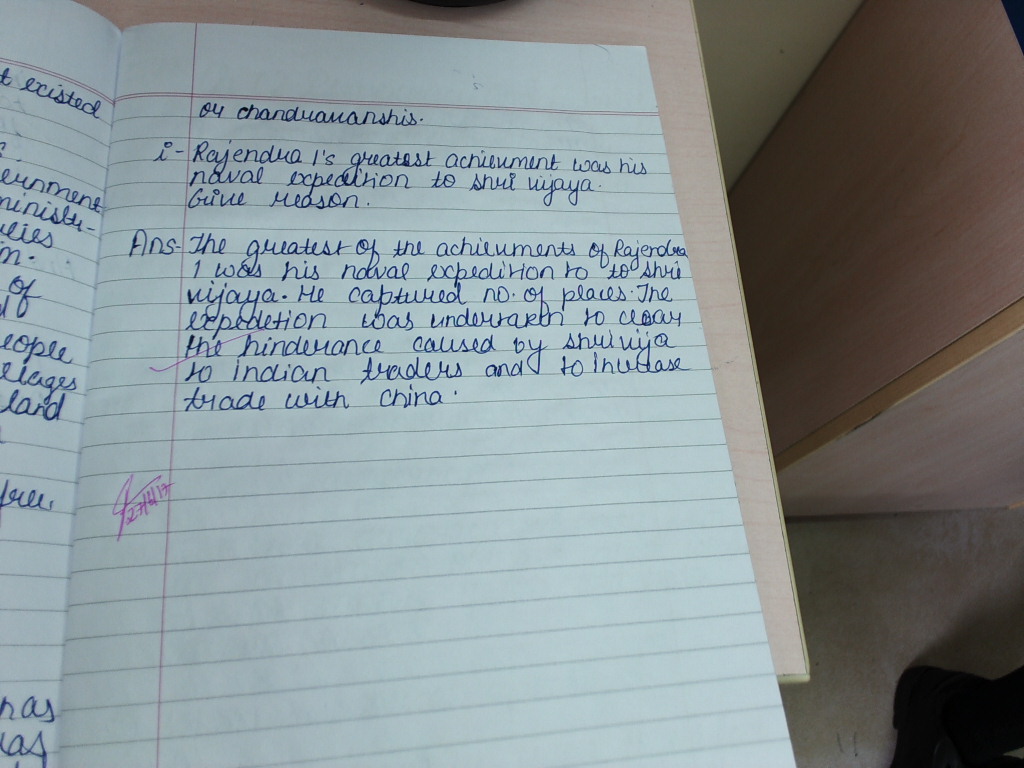 t existed
ernment
ministr-
of
eople
land
free.
has
04 chandravanshis.
i- Rajendra 1's greatest achievment was his
naval expedition to shri vijaya.
Give reason.
Ans- The greatest of the achievments of Rajendra
1 was his naval expedition to to shri
vijaya. He captured no. of places. The
expedetion was undertaken to clear
the hinderance caused by shrivija
to indian traders and to increase
trade with china.
27/4/17